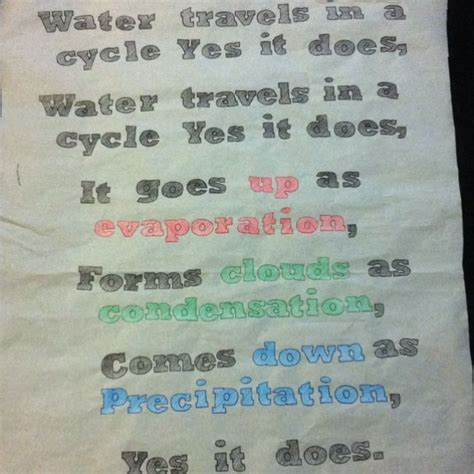 Water travels in a
cycle Yes it does,
Water travels in a
cycle Yes it does,
It goes up as
evaporation,
Forms clouds as
condensation,
Comes down as
Precipitation,
Yes it does.